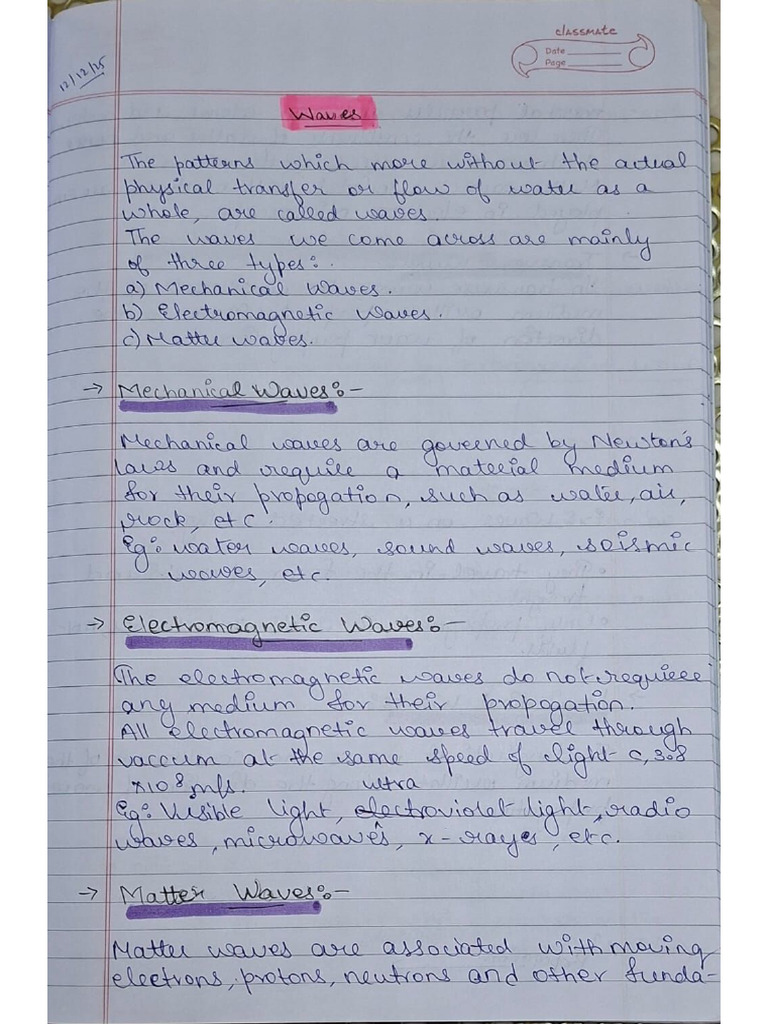 classmate
Date
Page
12/12/25
Waves
The patterns which move without the actual
physical transfer or flow of water as a
whole, are called waves.
The waves we come across are mainly
of three types:
a) Mechanical Waves.
b) Electromagnetic waves.
c) Matter waves.
→ Mechanical Waves:-
Mechanical waves are governed by Newton's
laws and require a material medium
for their propogation, such as water, air,
rock, etc.
Eg: water waves, sound waves, seismic
waves, etc.
→ Electromagnetic Waves:-
The electromagnetic waves do not require
any medium for their propogation.
All electromagnetic waves travel through
vaccum at the same speed of light c, 3.8
×10⁸ m/s.
ultra
Eg: Visible light, electroviolet light, radio
waves, microwaves, x-rayes, etc.
→ Matter Waves:-
Matter waves are associated with moving
electrons, protons, neutrons and other funda-